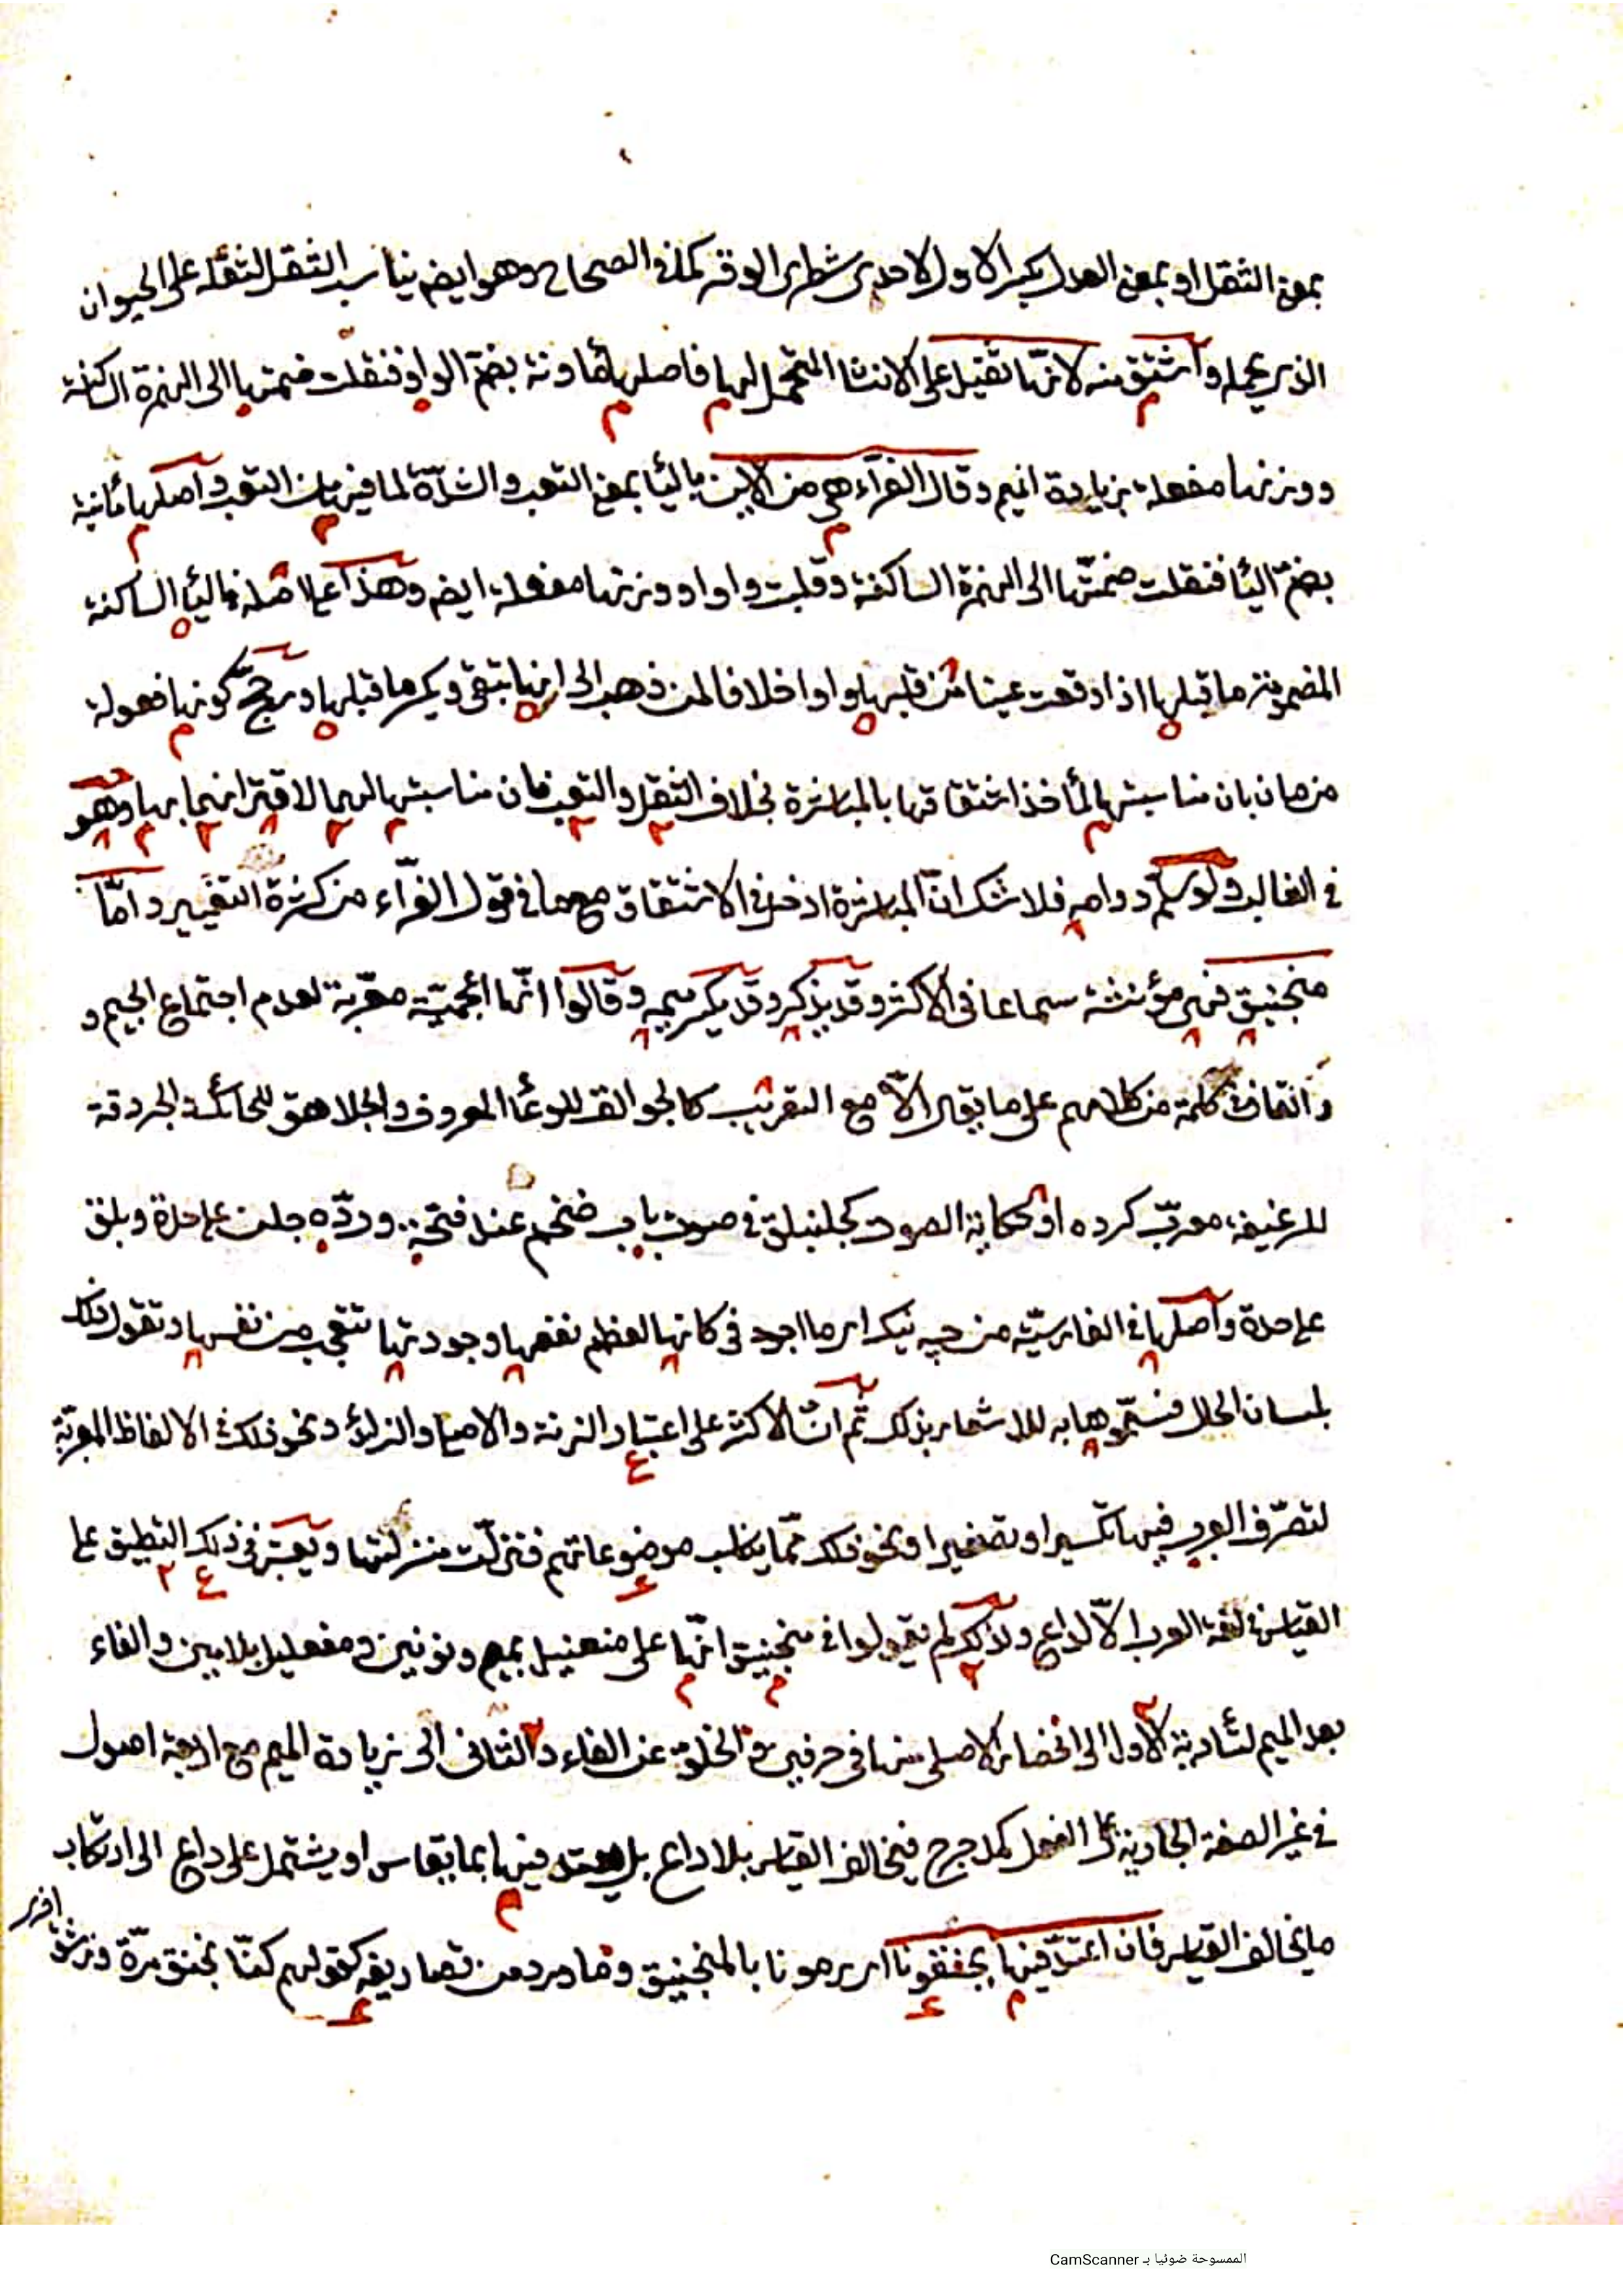 بمعنى الثقل او بمعنى العدل بكسر الاول لاحدى شطرى الوقر كما فى الصحاح وهو ايضا يناسب الثقل لثقله على الحيوان
الذى يحمله واشتق منه لانها ثقيل على الانسان المتحمل لها فاصلها مأونة بضم الواو فنقلت ضمتها الى الهمزة الساكنة
ووزنها مفعلة بزيادة الميم وقال الفراء هى من الاين بالياء بمعنى التعب والشدة لما فيها من التعب واصلها مأينة
بضم الياء فنقلت ضمتها الى الهمزة الساكنة وقلبت واوا ووزنها مفعلة ايضا وهذا على اصله فى الياء الساكنة
المضموم ما قبلها اذا وقعت عينا من قلبها واوا خلافا لمن ذهب الى انها تبقى ويكسر ما قبلها ورجح كونها فعولة
من مان بان مناسبتها لمأخذ اشتقاقها بالمباشرة بخلاف الثقل والتعب فان مناسبتها لهما لاقترانهما بها وهو
فى الغالب ولو سلم دوامه فلا شك ان المباشرة ادخل فى الاشتقاق مع ما فى قول الفراء من كثرة التغيير واما
منجنيق فهى مؤنثة سماعا فى الاكثر وقد يذكر وقد يكسر ميمه وقالوا انها اعجمية معربة لعدم اجتماع الجيم و
والقاف فى كلمة من كلامهم على ما يقال الا مع التعريب كالجوالق للوعاء المعروف والجلاهق للحائك والجردقة
للرغيف معرب كرده او حكاية الصوت كجلنبلق فى صوت باب ضخم عند فتحه ورده جلن على حدة وبلق
على حدة واصلها فى الفارسية من چه نيك اى ما اجود فى كانها لعظم نفعها وجودتها تتعجب من نفسها وتقول ذلك
بلسان الحال فسموها به للاشعار بذلك ثم ان الاكثر على اعتبار الزنة والاصل والزائد ونحو ذلك فى الالفاظ المعربة
لتصرف العرب فيها تكسيرا وتصغيرا ونحو ذلك مما يطلب موضوعاتهم فتنزلت منزلتها ويعتبر فى ذلك التطبيق على
القياس فى لغة العرب الا لداع ولذلك لم يقولوا فى منجنيق انها على منفنيل بميم ونونين ومفعليل بلامين والفاء
بعد الميم لتأدية الاول الى انحصار الاصلى منها فى حرفين مع الخلو عن الفاء والثانى الى زيادة الميم مع اربعة اصول
فى غير الصفة الجارية على الفعل كمدحرج فيخالف القياس بلا داع بل يعتد فيها بما يقاس او يشتمل على داع الى ارتكاب
ما يخالف القياس فان اعتد فيها بجنقونا اى يرمونا بالمنجنيق وما ورد من تصاريفه كقولهم كنا نجنق مرة ونرشق
اخرى
الممسوحة ضوئيا بـ CamScanner